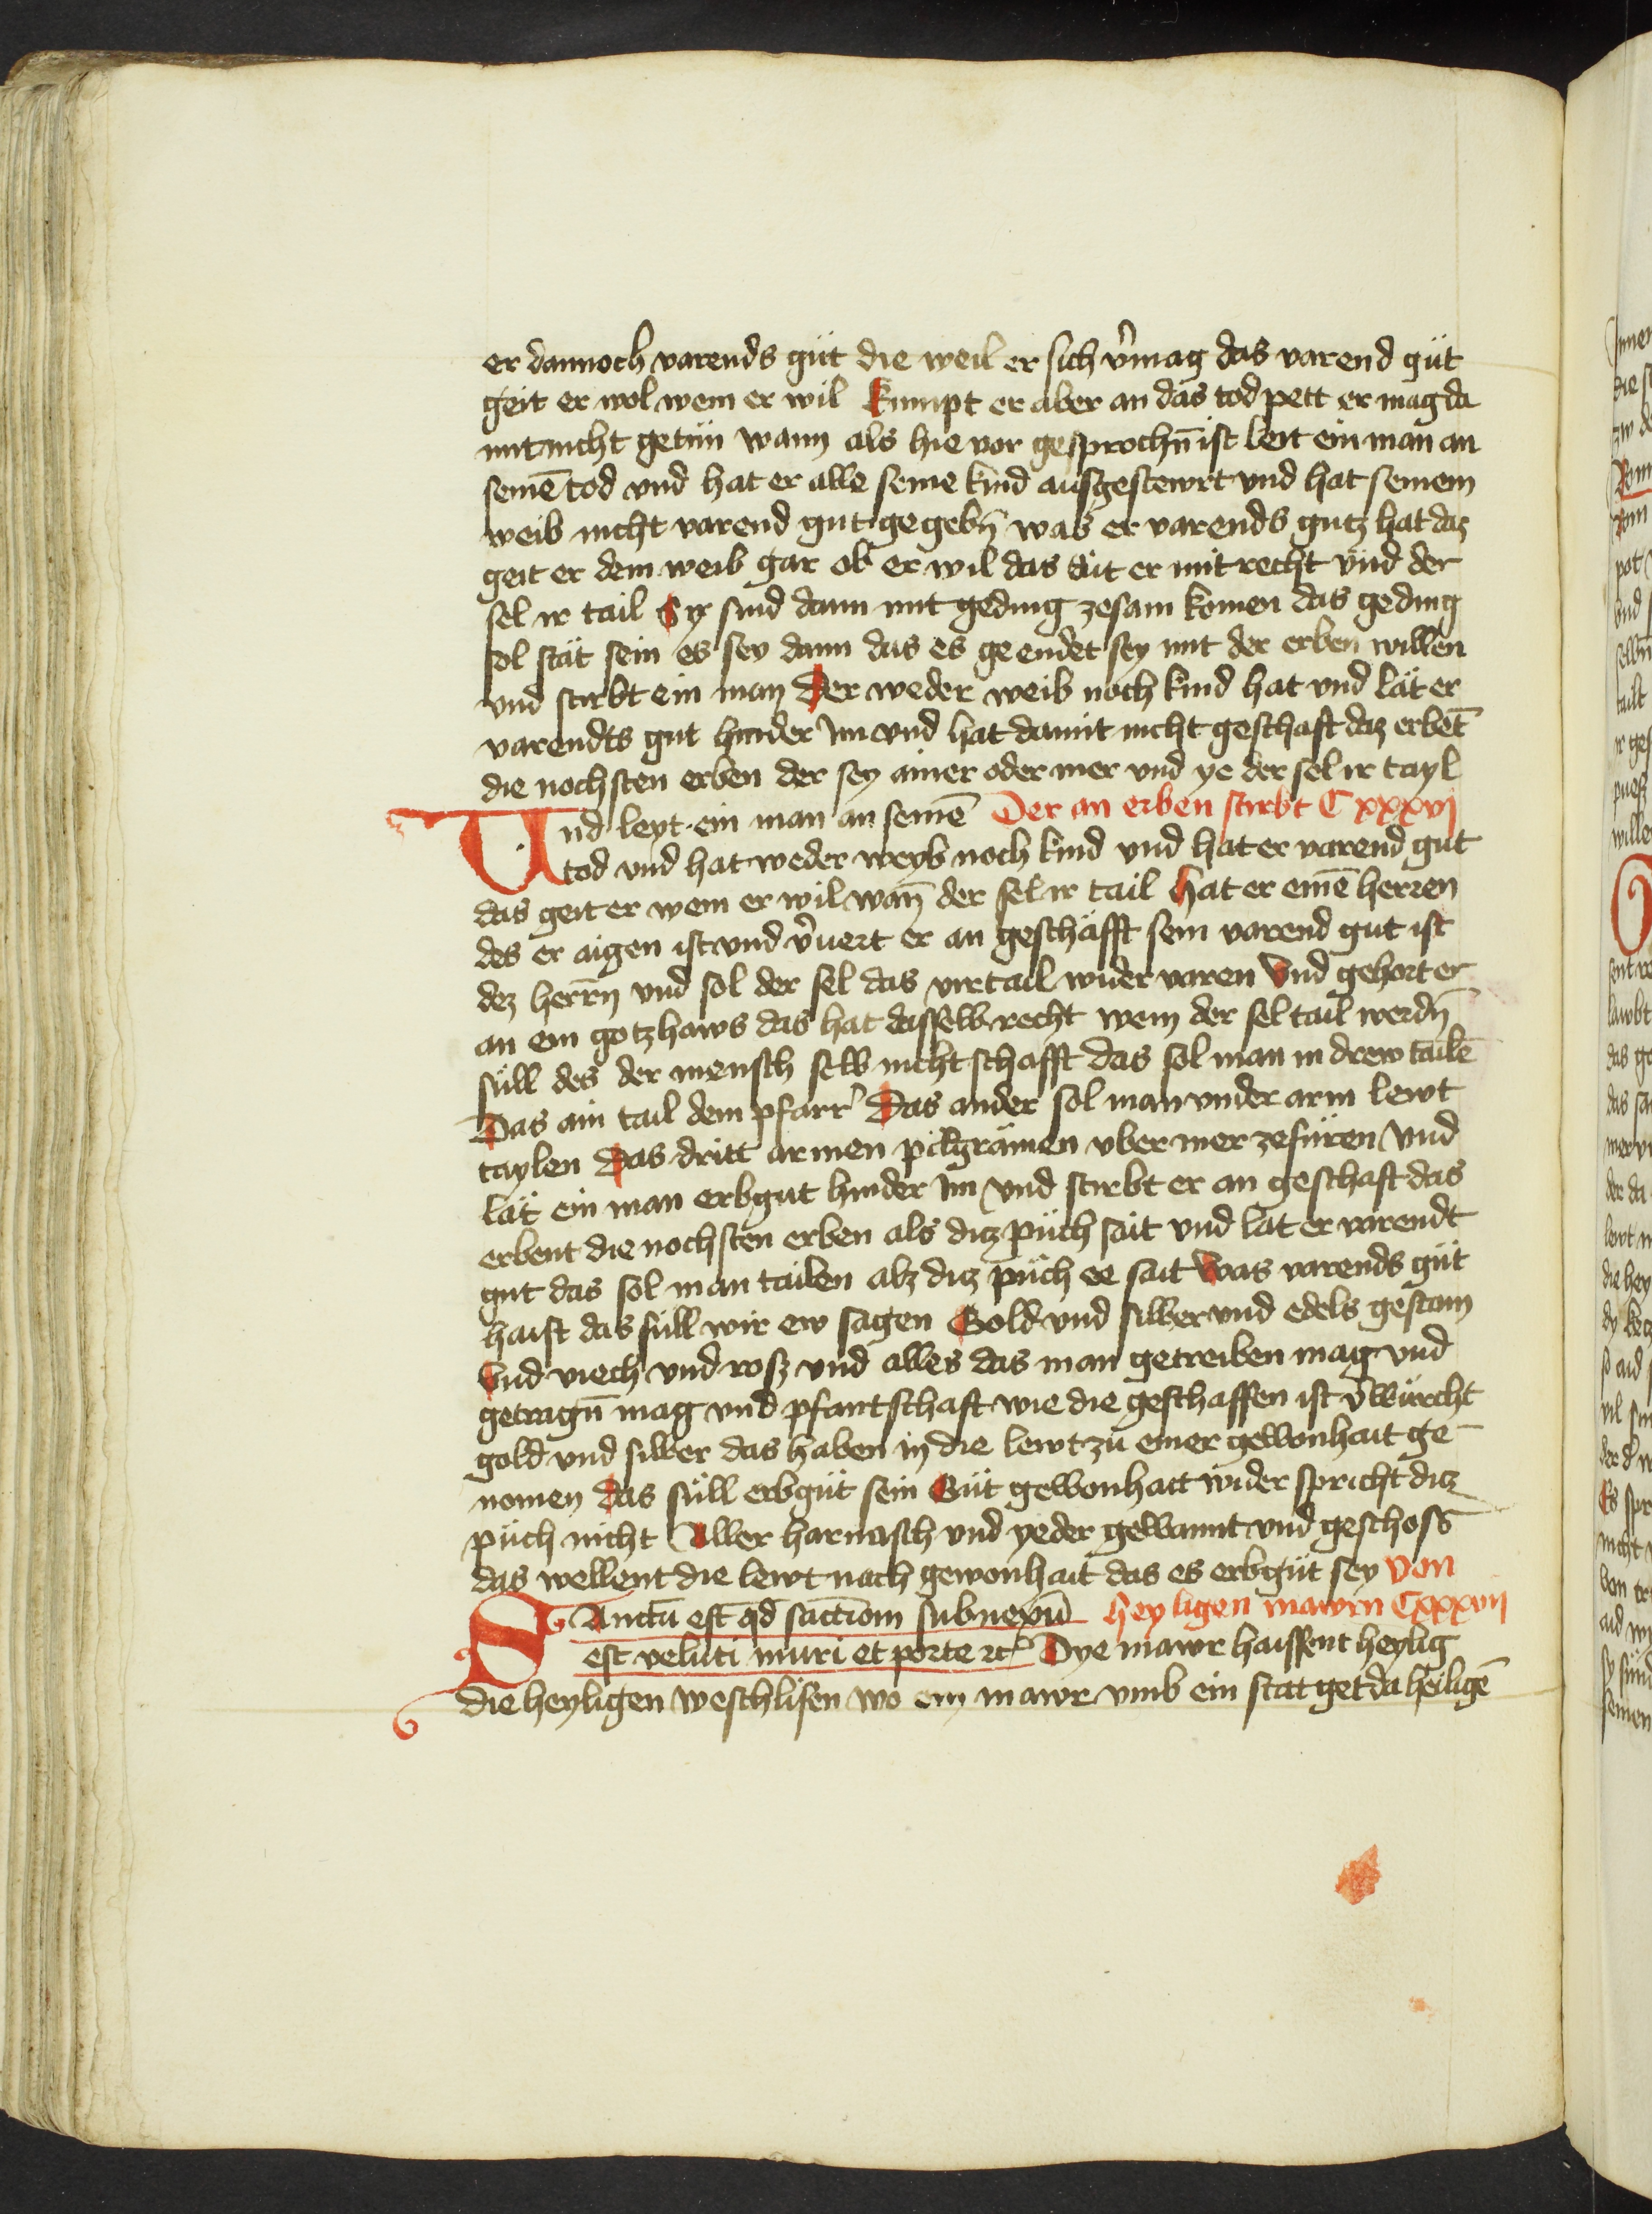 er dannoch varends gůt die weil er sich v̉mag das varend gůt
geit er wol wem er wil Kumpt er aber an das tod pett er mag da
mit nicht getůn wann als hie vor gesprochn̄ ist leit ein man an
seinē tod vnd hat er alle seine kind ausgestewrt vnd hat seinem
weib nicht varend gut gegebn̄ was er varends gutz hat daz
geit er dem weib gar ob er wil das tůt er mit recht vnd der
sel ir tail Sy sind dann mit geding zesam komen das geding
sol stät sein es sey dann das es geendet sey mit der erben willen
vnd stirbt ein man Der weder weib noch kind hat vnd lät er
varendts gut hinder im vnd hat damit nicht geschaft daz erbēt
die nochsten erben der sey ainer oder mer vnd ye der sel ir tayl
Und leyt ein man an seinē Der an erben stirbt Cxxxvj
tod vnd hat weder weyb noch kind vnd hat er varend gut
das geit er wem er wil wan̄ der sel ir tail Hat er einē herren
des er aigen ist vnd v̉uert er an geschäfft sein varend gut ist
dez herrn̄ vnd sol der sel das virtail wider varen Vnd gehort er
an ein gotzhaws das hat dasselb recht wem der sel tail werdn̄
süll des der mensch selb nicht schafft das sol man in drew tailē
Das ain tail dem pfarr̉ Das ander sol man vnder arm lewt
taylen Das dritt armen pilgrämen vber mer zefüren Vnd
lät ein man erbgut hinder im vnd stirbt er an geschaft das
erbent die nochsten erben als ditz půch sait vnd lat er varendt
gut das sol man tailen alz ditz půch ee sait Was varends gůt
haist das süll wir ew sagen Gold vnd silber vnd edels gestain
Vnd viech vnd rosz vnd alles das man getreiben mag vnd
getragn̄ mag vnd pfantschaft wie die geschaffen ist v̉würcht
gold vnd silber das haben in die lewt zu einer gewonhait ge
nomen Das süll erbgůt sein Gůt gewonhait wider spricht ditz
půch nicht Aller harnasch vnd yeder gewannt vnd geschoss
das wellent die lewt nach gewonhait das es erbgůt sey Von
Sanctū est qd sāctiom subnexū heyligen mawrn Cxxxvij
est veluti muri et porte ꝛc̄ Dye mawr haissent heylig
die heyligen weschlisen wo ein mawr vmb ein stat get da heiligē